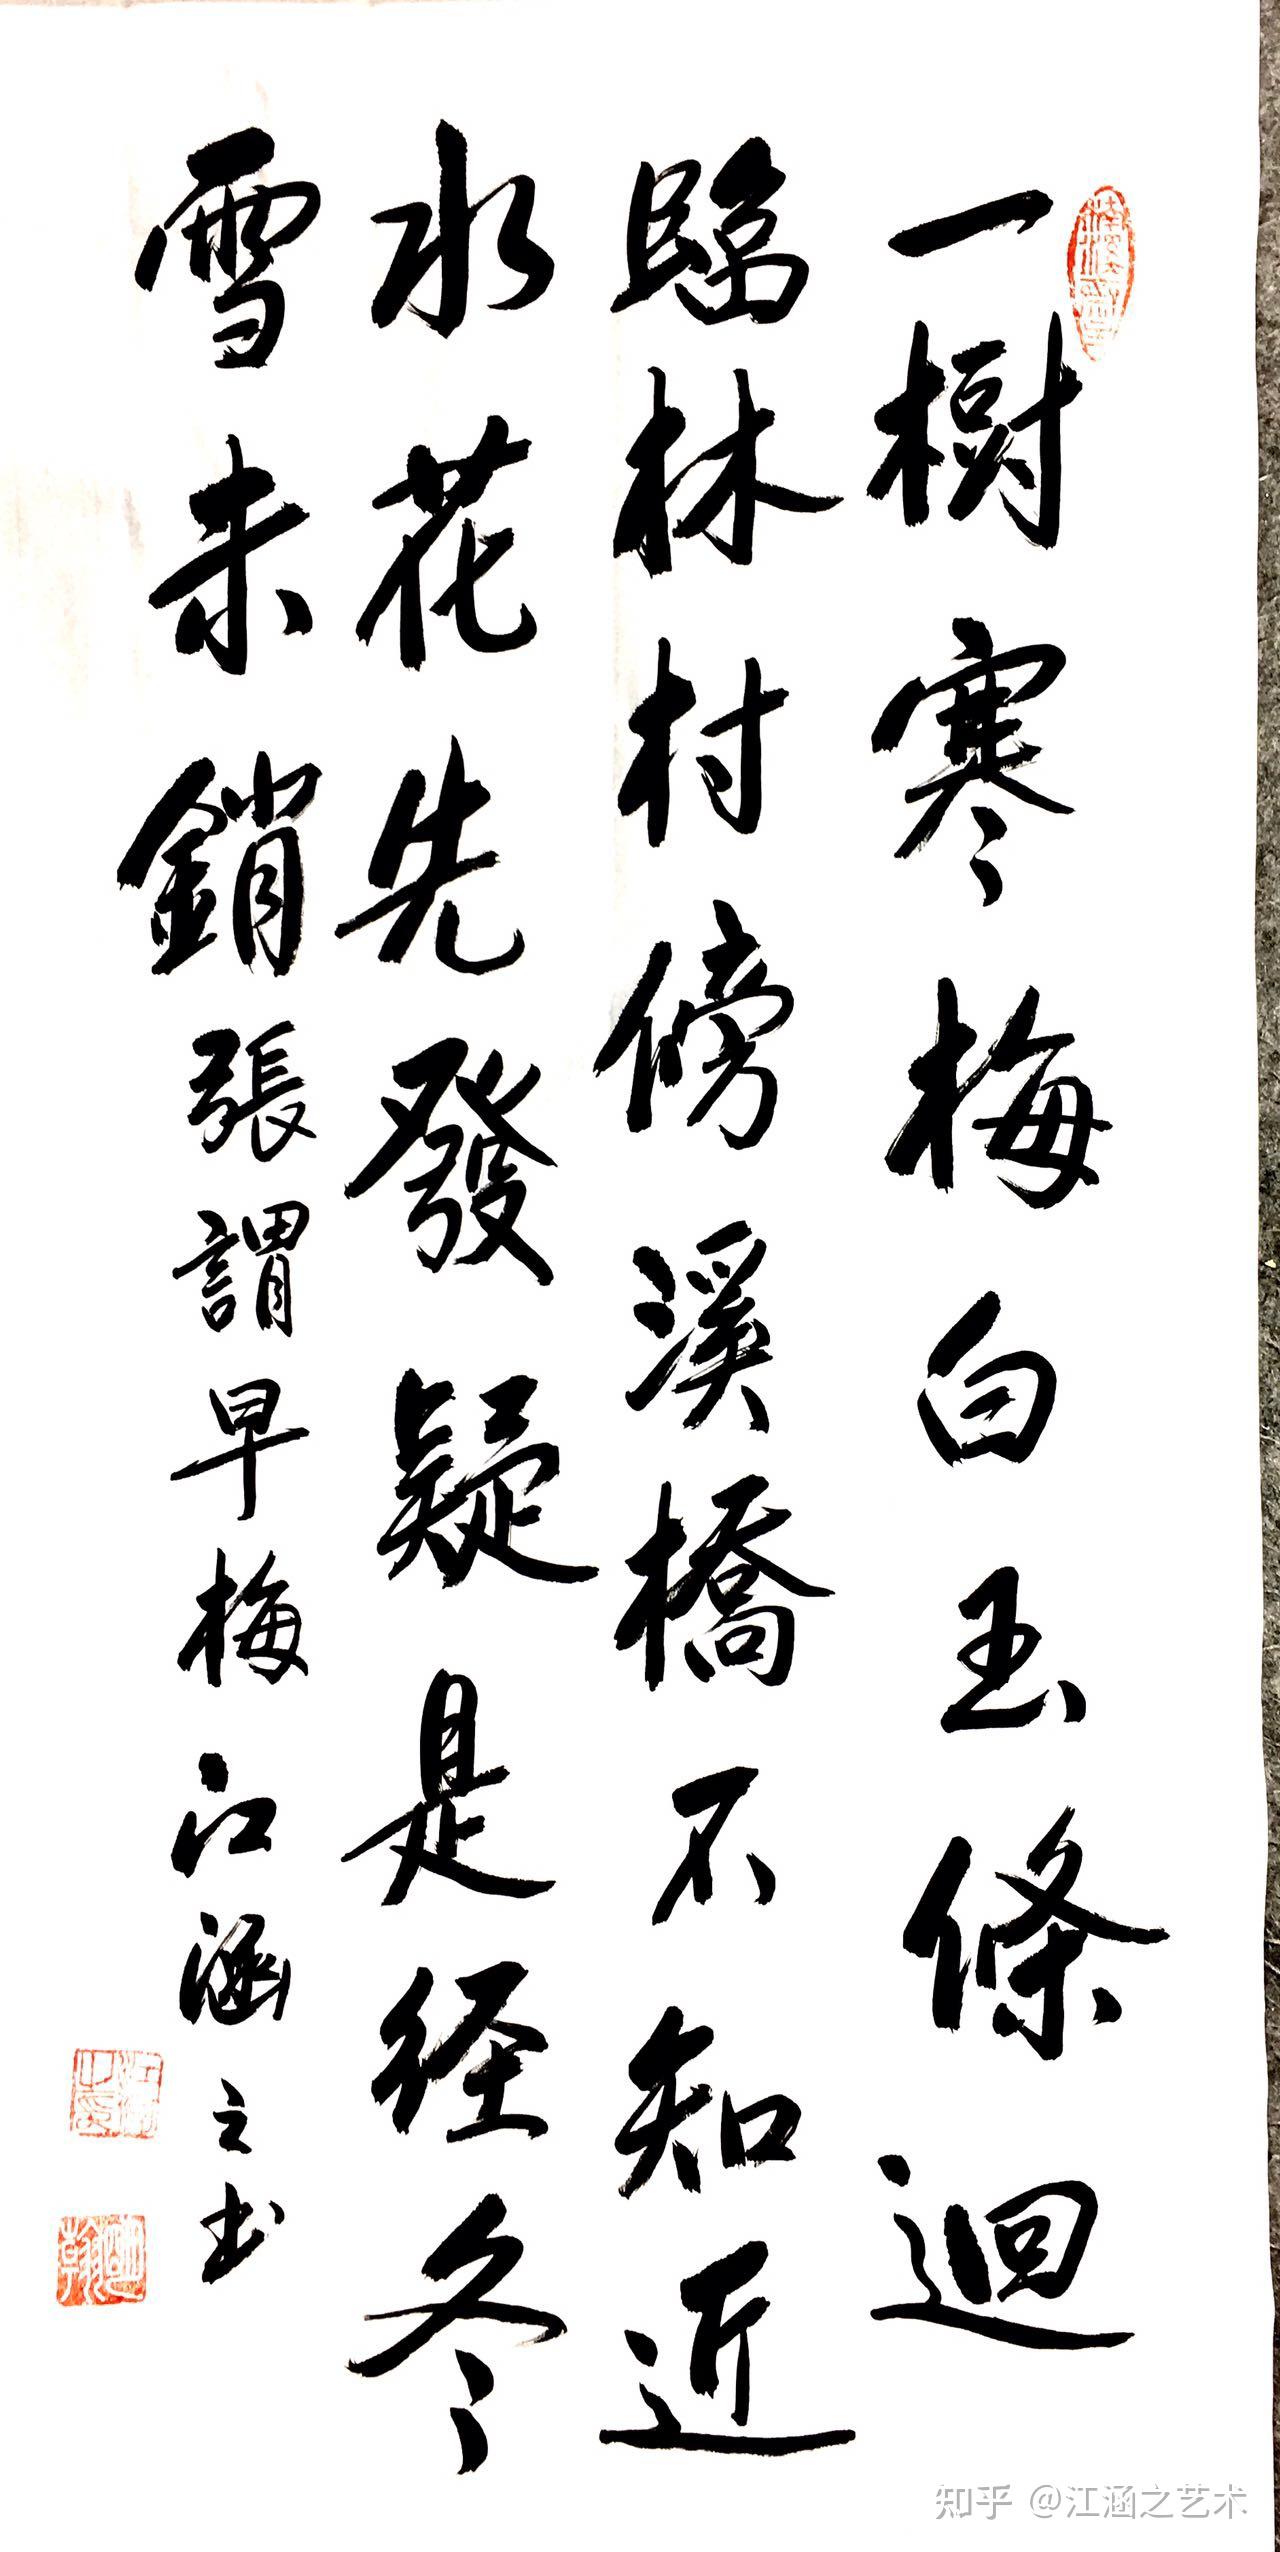 一樹寒梅白玉條迴
臨林村傍溪橋不知近
水花先發疑是经冬
雪未銷張謂早梅江涵之书
江涵之印
知乎 @江涵之艺术